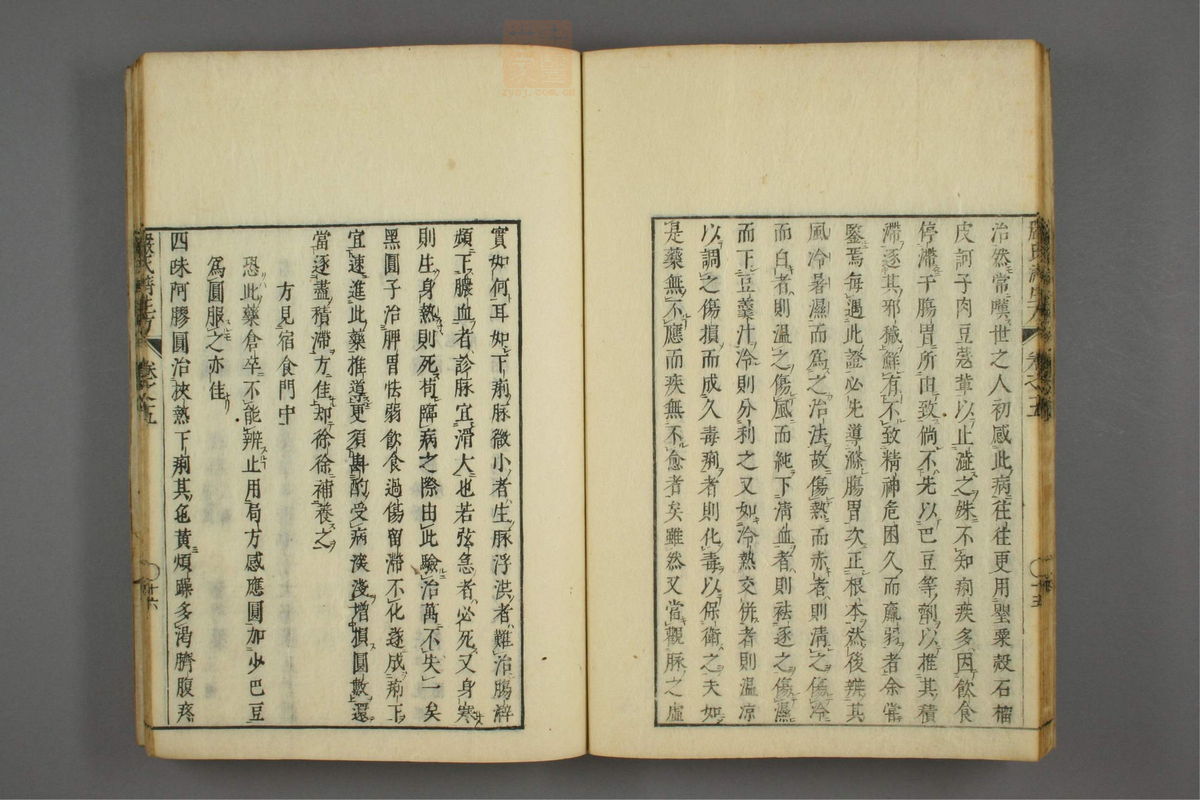 治然常嘆世之人初感此病往往更用罌粟殼石榴
皮訶子肉豆蔻輩以止澁之殊不知痢疾多因飲食
停滯于腸胃所由致倘不先以巴豆等劑以推其積
滯逐其邪穢鮮有不致精神危困久而羸弱者余嘗
鑒焉每遇此證必先導滌腸胃次正根本然後辨其
風冷暑濕而爲之治法故傷熱而赤者則清之傷冷
而白者則温之傷風而純下清血者則祛逐之傷濕
而下豆羹汁冷則分利之又如冷熱交併者則温凉
以調之傷損而成久毒痢者則化毒以保衛之夫如
是藥無不應而疾無不愈者矣雖然又當觀脉之虛
實如何耳如下痢脉微小者生脉浮洪者難治腸澼
頻下膿血者診脉宜滑大也若弦急者必死又身寒
則生身熱則死苟臨病之際由此驗治萬不失一矣
黑圓子治脾胃怯弱飲食過傷留滯不化遂成痢下
宜速進此藥推導更須斟酌受病淺深增損圓數還
當逐盡積滯方佳却徐徐補養之
方見宿食門中
恐此藥倉卒不能辨止用局方感應圓加少巴豆
爲圓服之亦佳
四味阿膠圓治挾熱下痢其色黃煩躁多渴臍腹疼
嚴氏濟生方 卷之五